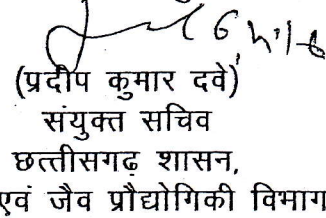 (प्रदीप कुमार दवे)
संयुक्त सचिव
छत्तीसगढ़ शासन,
एवं जैव प्रौद्योगिकी विभाग